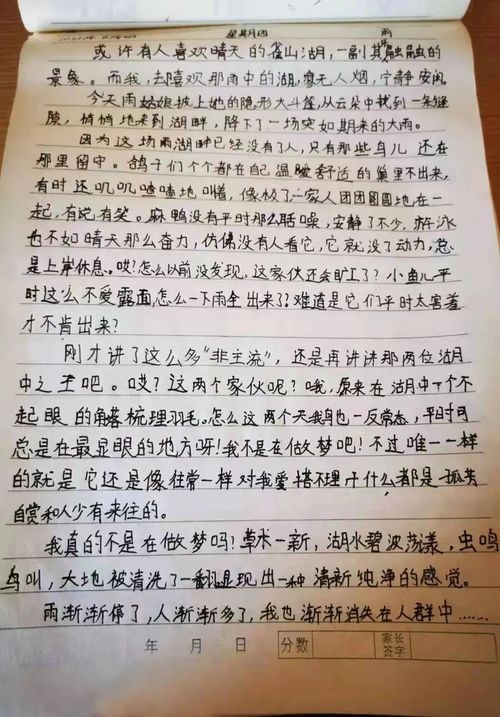 星期四 雨
或许有人喜欢晴天的雀山湖,一副其融融的
景象。而我,去嘻欢那雨中的湖,寥无人烟,宁静安闲。
今天雨姑娘披上她的隐形大斗篷,从云朵中找到一条缝
隙,悄悄地来到湖畔,降下了一场突如期来的大雨。
因为这场雨湖畔已经没有了人,只有那些鸟儿还在
那里留守。鸽子们个个都在自己温暖舒适的巢里不出来,
有时还叽叽喳喳地叫着,像极了一家人团团圆圆地在一
起,有说有笑。麻鸭没有平时那么聒噪,安静了不少,游泳
也不如晴天那么奋力,仿佛没有人看它,它就没了动力,总
是上岸休息。哎?怎么以前没发现,这家伙还会旷工了?小鱼儿平
时这么不爱露面,怎么一下雨全出来了?难道是它们平时太害羞
才不肯出来?
刚才讲了这么多“非主流”,还是再讲讲那两位湖
中之王吧。哎?这两个家伙呢?哦,原来在湖中一个不
起眼的角落梳理羽毛。怎么这两个天鹅也一反常态,平时可
总是在最显眼的地方呀!我不是在做梦吧!不过唯一一样
的就是它还是像往常一样对我爱搭不理,干什么都是孤芳
自赏和人少有来往的。
我真的不是在做梦吗?草木一新,湖水碧波荡漾,虫鸣
鸟叫,大地被清洗了一翻,显现出一种清新纯净的感觉。
雨渐渐停了,人渐渐多了,我也渐渐消失在人群中……
年 月 日 分数 家长签字